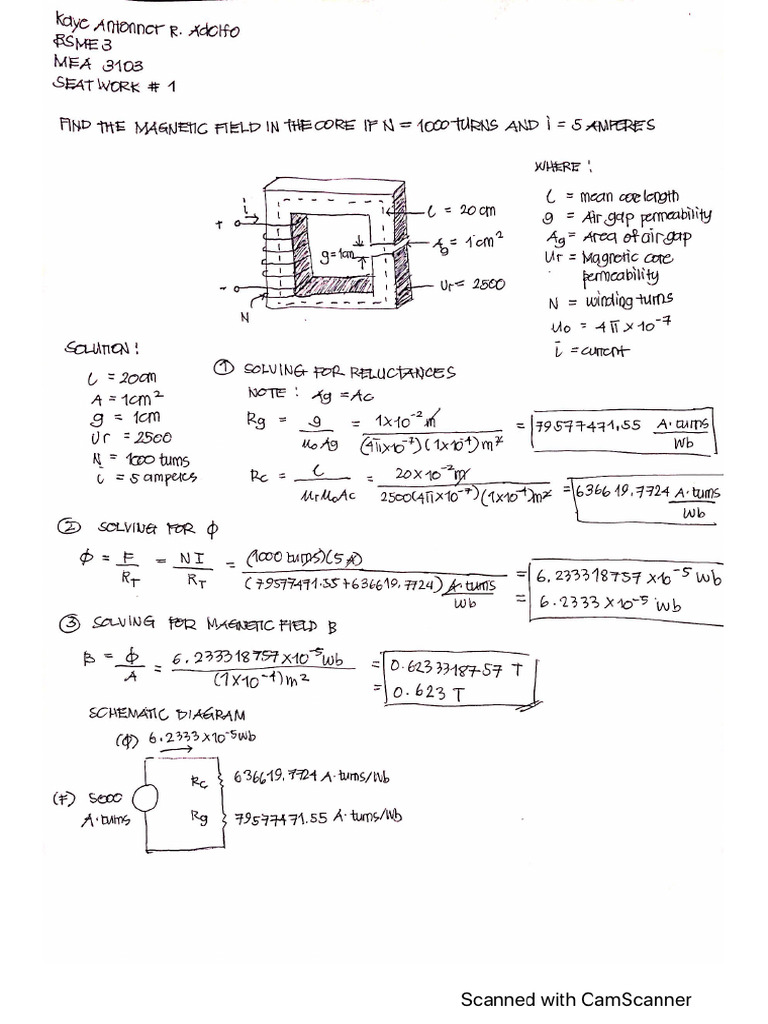 Kaye Antonnet R. Adolfo
BSME 3
MEA 3103
SEATWORK # 1
FIND THE MAGNETIC FIELD IN THE CORE IF N = 1000 TURNS AND i = 5 AMPERES
WHERE :
l = mean core length
g = Air gap permeability
Ag = Area of air gap
Ur = Magnetic core
permeability
N = winding turns
uo = 4π x 10^-7
i = current
i
+
-
N
g = 1cm
l = 20 cm
Ag = 1 cm²
Ur = 2500
SOLUTION :
l = 20cm
A = 1cm²
g = 1cm
Ur = 2500
N = 1000 turns
i = 5 amperes
① SOLVING FOR RELUCTANCES
NOTE : Ag = Ac
Rg = g / UoAg = 1x10^-2 m / (4πx10^-7)(1x10^-4)m² = 79577471.55 A·turns / Wb
Rc = l / UrUoAc = 20x10^-2 m / 2500(4πx10^-7)(1x10^-4)m² = 636619.7724 A·turns / Wb
② SOLVING FOR ϕ
ϕ = F / RT = NI / RT = (1000 turns)(5 A) / (79577471.55+636619.7724) A·turns / Wb = 6.233318757 x10^-5 Wb
= 6.2333 x10^-5 Wb
③ SOLVING FOR MAGNETIC FIELD B
B = ϕ / A = 6.233318757x10^-5 Wb / (1x10^-4)m² = 0.6233318757 T
= 0.623 T
SCHEMATIC DIAGRAM
(ϕ) 6.2333 x10^-5 Wb
(F) 5000
A·turns
Rc 636619.7724 A·turns/Wb
Rg 79577471.55 A·turns/Wb
Scanned with CamScanner